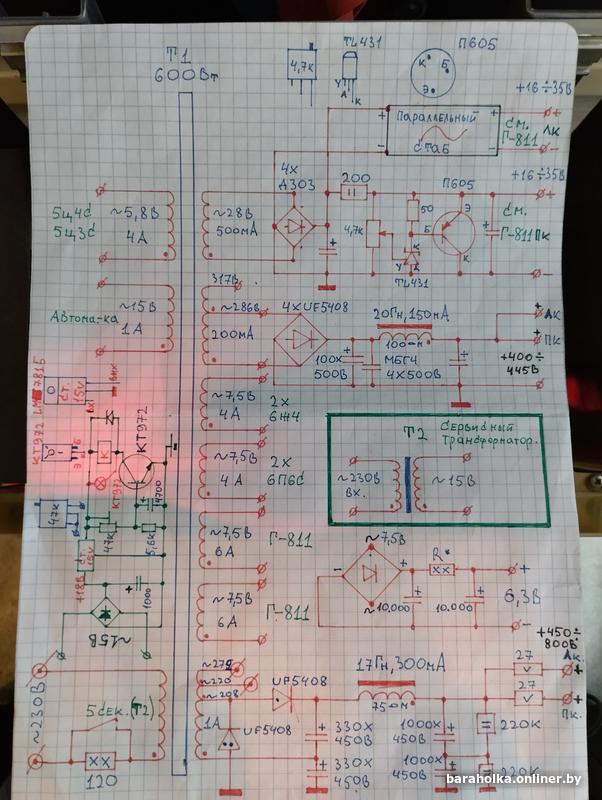 T1
600Вт
4,7к
TL431
У
А
К
П605
К
Б
Э
+16÷35В
+
Параллельный
+
См.
ЛК
−
стаб
−
Г-811
5ц4с
5ц3с
~5,8В
4А
~28В
500мА
4х
Д303
200
50
4,7к
П605
Э
Б
К
К
У
А
TL431
+16÷35В
+
См.
Г-811ПК
−
Автома-ка
~15В
1А
317В
~286В
200мА
4хUF5408
20Гн,150мА
100 мкм
100х
500В
МБГЧ
4х500В
+
ЛК
+
ПК
+400÷
445В
~7,5В
4А
2х
6Ж4
~7,5В
4А
2х
6П6С
T2
Сервисный
Трансформатор.
~230В
вх.
~15В
~7,5В
6А
Г-811
~7,5В
6А
Г-811
КТ972
Ст.
15V
ВЫХ
ВХ
К
КТ972
Э
К
Б
КТ972
47к
4700
47к
5,6к
Ст.
15V
+18В
1000
~15В
~7,5В
R*
~10.000
10.000
+
6,3В
−
~230В
5 сек.(Т2)
120
~220
~208
1А
UF5408
UF5408
17Гн,300мА
330х
450В
330х
450В
1000х
450В
1000х
450В
+450÷
800В
27
Лк.
+
27
+
Пк.
220К
220К
baraholka.onliner.by